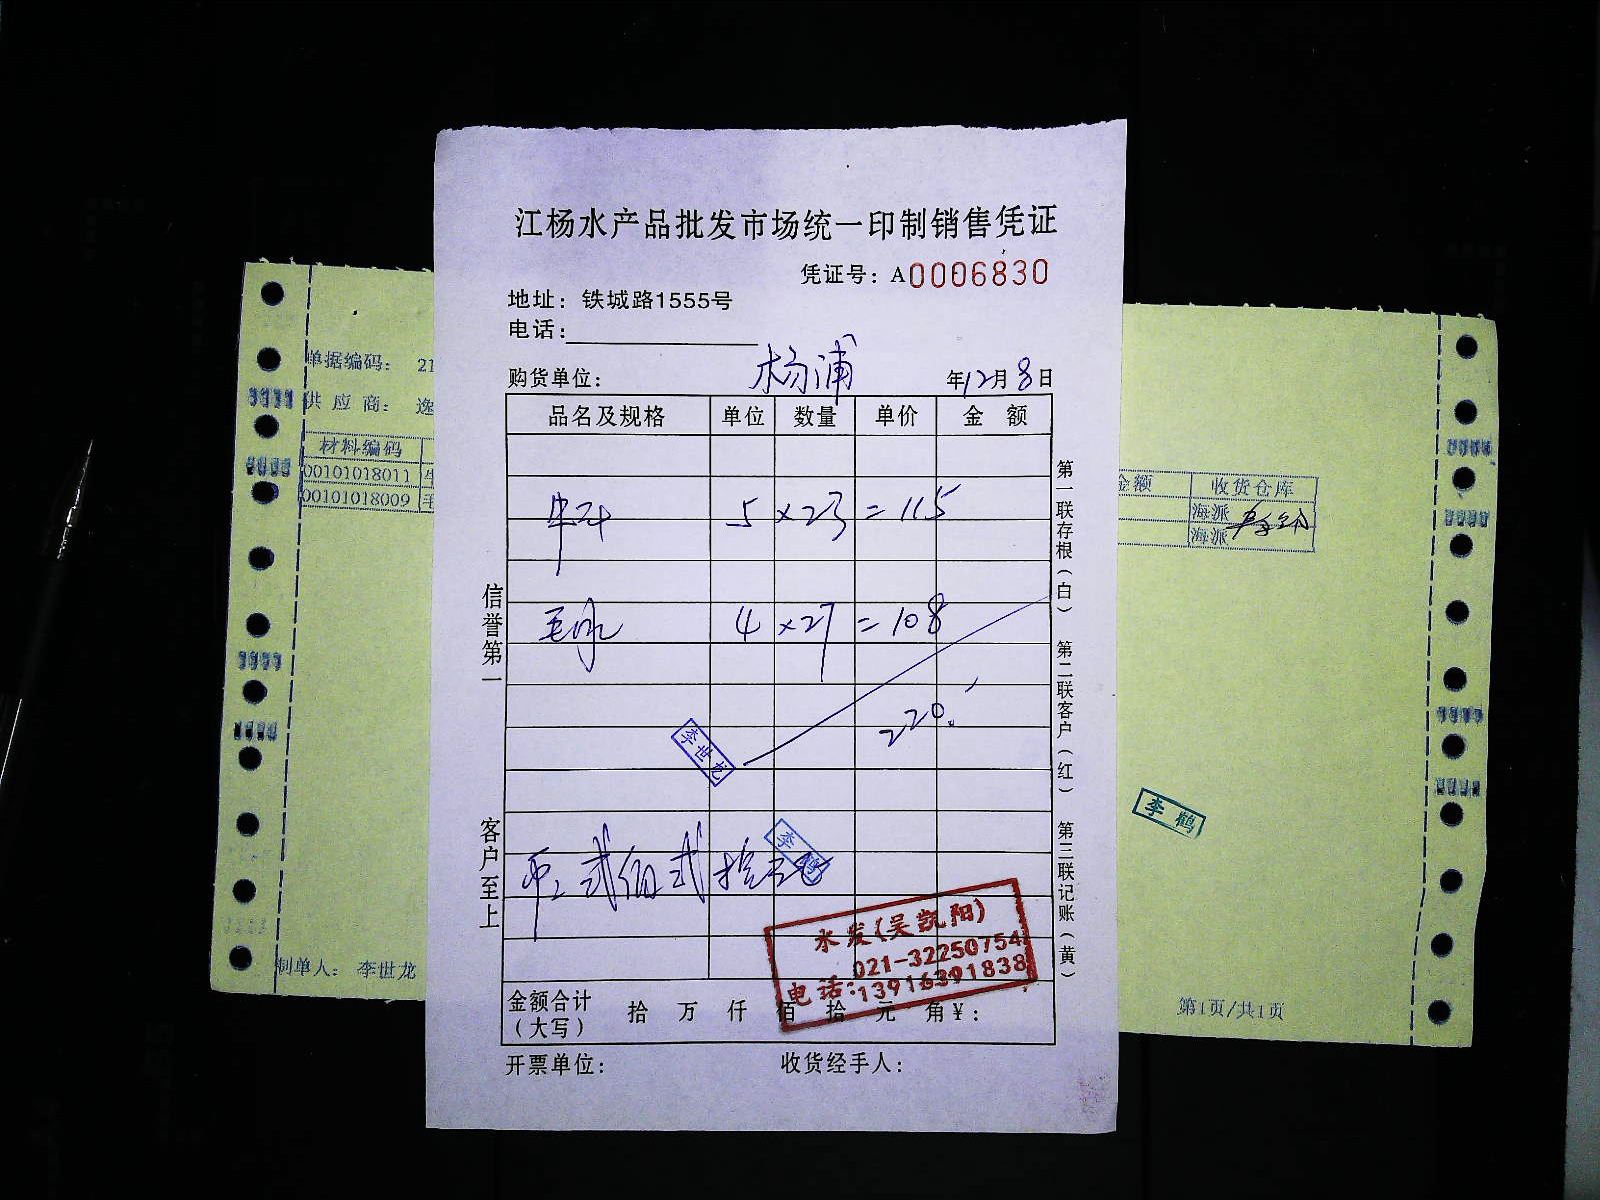 江杨水产品批发市场统一印制销售凭证
凭证号：A0006830
地址：铁城路1555号
电话：
购货单位： 杨浦 年12月8日
品名及规格 单位 数量 单价 金额
5 ×23 = 115
毛 4 ×27 = 108
220.
李世龙
李鹤
贰佰贰拾
水发(吴凯阳)
021-32250754
电话:13916391838
金额合计（大写） 拾 万 仟 佰 拾 元 角 ¥：
开票单位： 收货经手人：
信誉第一
客户至上
第一联存根（白） 第二联客户（红） 第三联记账（黄）
单据编码： 21
供应商： 逸
材料编码
00101018011 牛
00101018009 毛
制单人： 李世龙
金额 收货仓库
海派
海派
李鹤
第1页/共1页